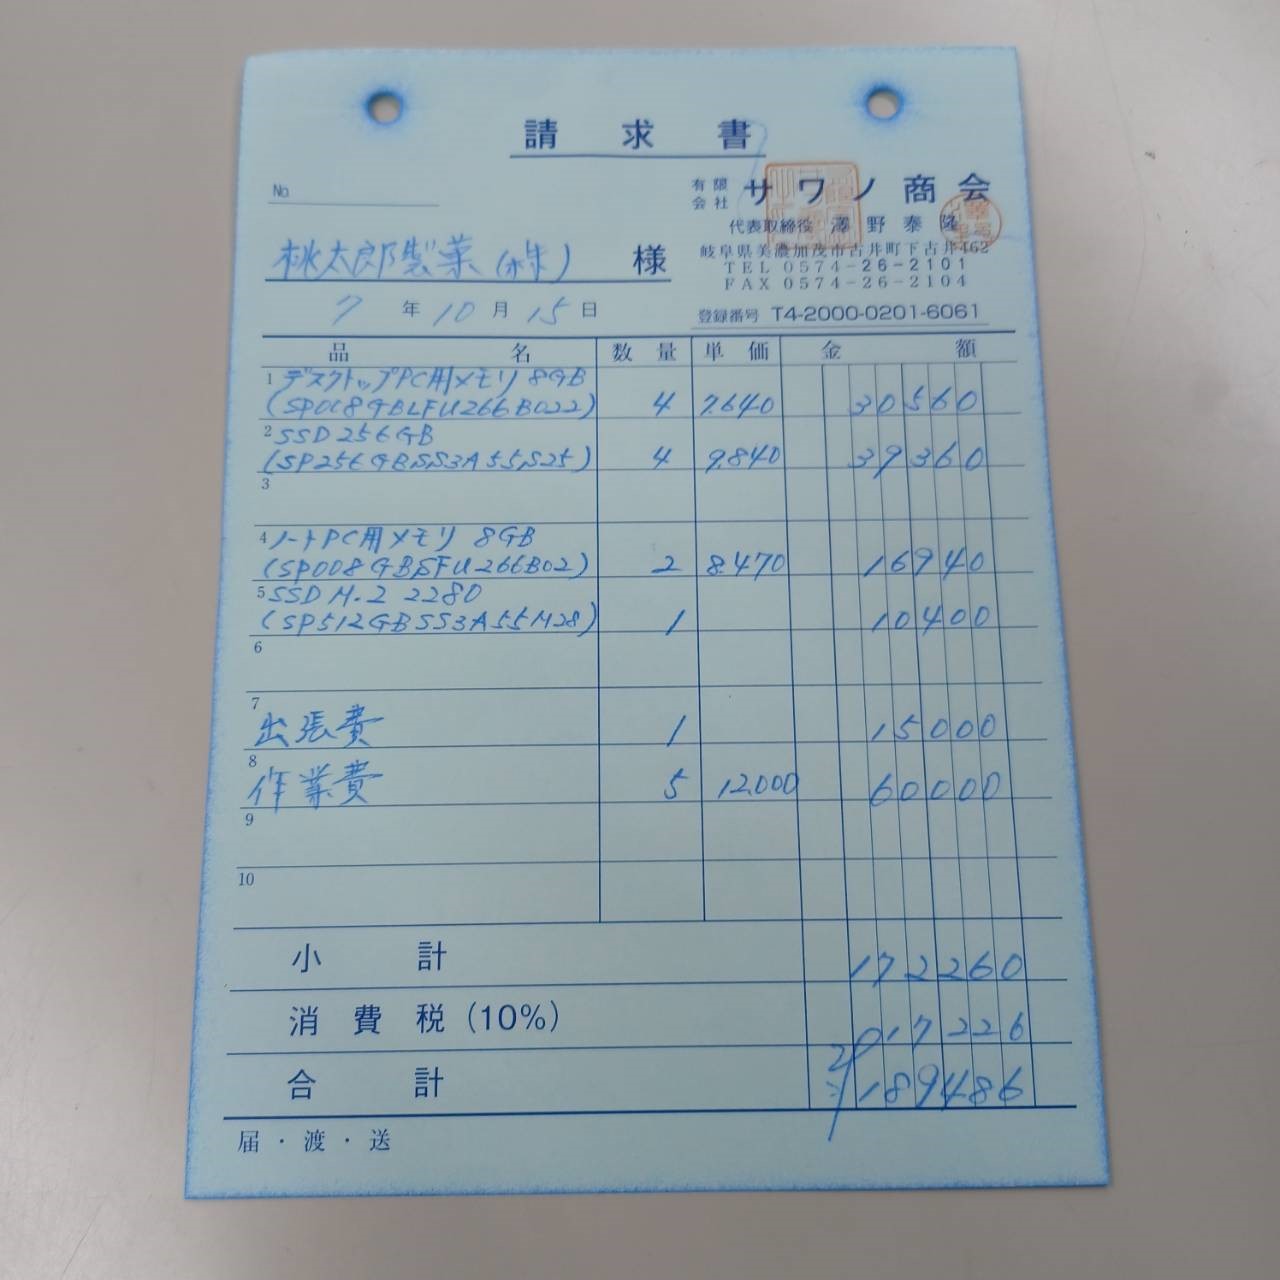 請求書
No.
有限会社 サワノ商会
代表取締役 澤野泰隆
岐阜県美濃加茂市古井町下古井462
TEL 0574-26-2101
FAX 0574-26-2104
登録番号 T4-2000-0201-6061
桃太郎製菓(株) 様
7年10月15日
品名 数量 単価 金額
1 デスクトップPC用メモリ 8GB
(SP008GBLFU266B022) 4 7.640 30560
2 SSD 256GB
(SP256GBSS3A55S25) 4 9.840 39360
3
4 ノートPC用メモリ 8GB
(SP008GBSFU266B02) 2 8.470 16940
5 SSD M.2 2280
(SP512GBSS3A55M28) 1 10400
6
7 出張費 1 15000
8 作業費 5 12.000 60000
9
10
小計 172260
消費税(10%) 17226
合計 189486
届・渡・送